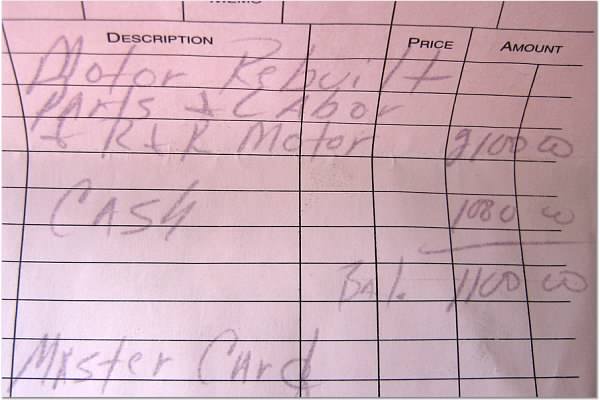 MEMO
DESCRIPTION PRICE AMOUNT
Motor Rebuilt
Parts + Labor
+ R+R Motor 2100 00
CASH 1080 00
Bal. 1100 00
Master Card